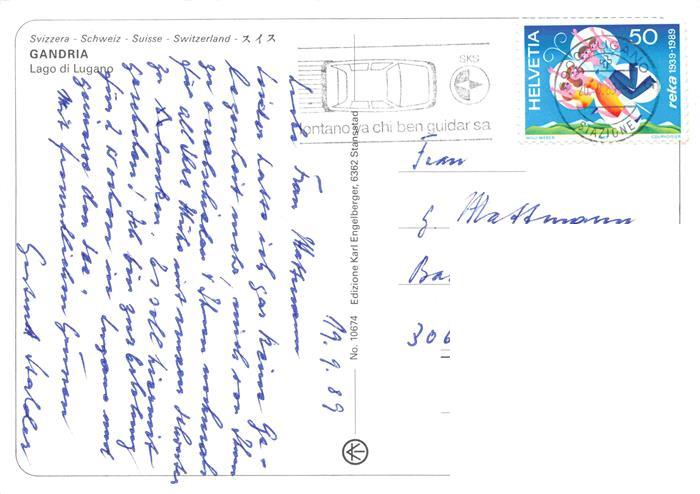 Svizzera - Schweiz - Suisse - Switzerland - スイス
GANDRIA
Lago di Lugano
19. 9. 89
Liebe Frau Mattmann
Leider hatte ich gar keine Ge-
legenheit mehr, mich von Ihnen
zu verabschieden & Ihnen nochmals
für alle Ihre Mühe mit meiner Schwester
zu danken. Es soll hiermit
geschehen! Ich bin zur Erholung
für 2 Wochen in Lugano und
geniesse den See.
Mit freundlichen Grüssen
Gertrud Stalder
No. 10674 Edizione Karl Engelberger, 6362 Stansstad
SKS
lontano va chi ben guidar sa
HELVETIA
50
reka 1939-1989
WILLI WEBER
COURVOISIER
LUGANO
STAZIONE
Frau
G. Mattmann
Ba
306